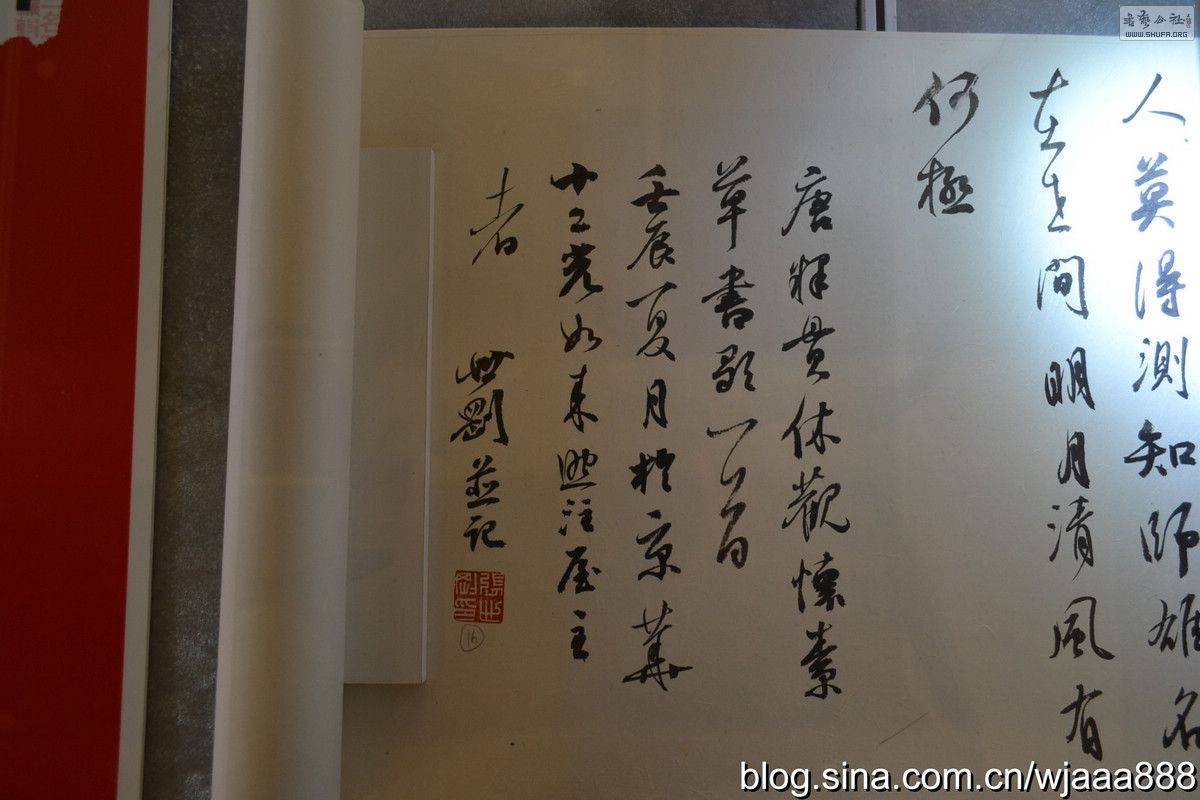 人莫得测知師雄名
在世間明月清風有
何極
唐釋貫休觀懷素
草書歌一首
壬辰夏月於京華
十二
如來
屋主
者
世剛並記
張世剛印
16
書藝公社
WWW.SHUFA.ORG
blog.sina.com.cn/wjaaa888